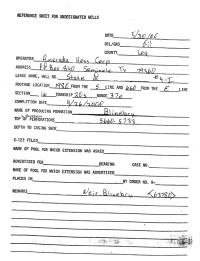 REFERENCE SHEET FOR UNDESIGNATED WELLS
DATE 5/30/00
OIL/GAS Oil
COUNTY Lea
OPERATOR Amerada Hess Corp
ADDRESS P.O. Box 840 Seminole Tx 79360
LEASE NAME, WELL NO. State #4-I
FOOTAGE LOCATION 1980 FROM THE S LINE AND 660 FROM THE E LINE
SECTION TOWNSHIP 20s RANGE 37e
COMPLETION DATE 4/26/2000
NAME OF PRODUCING FORMATION Blinebry
TOP OF PERFORATIONS 5660-5733
DEPTH TO CASING SHOE
C-123 FILED
NAME OF POOL FOR WHICH EXTENSION WAS ASKED
ADVERTISED FOR HEARING CASE NO.
NAME OF POOL FOR WHICH EXTENSION WAS ADVERTISED
PLACED IN BY ORDER NO. R-
REMARKS Weir Blinebry <63780>